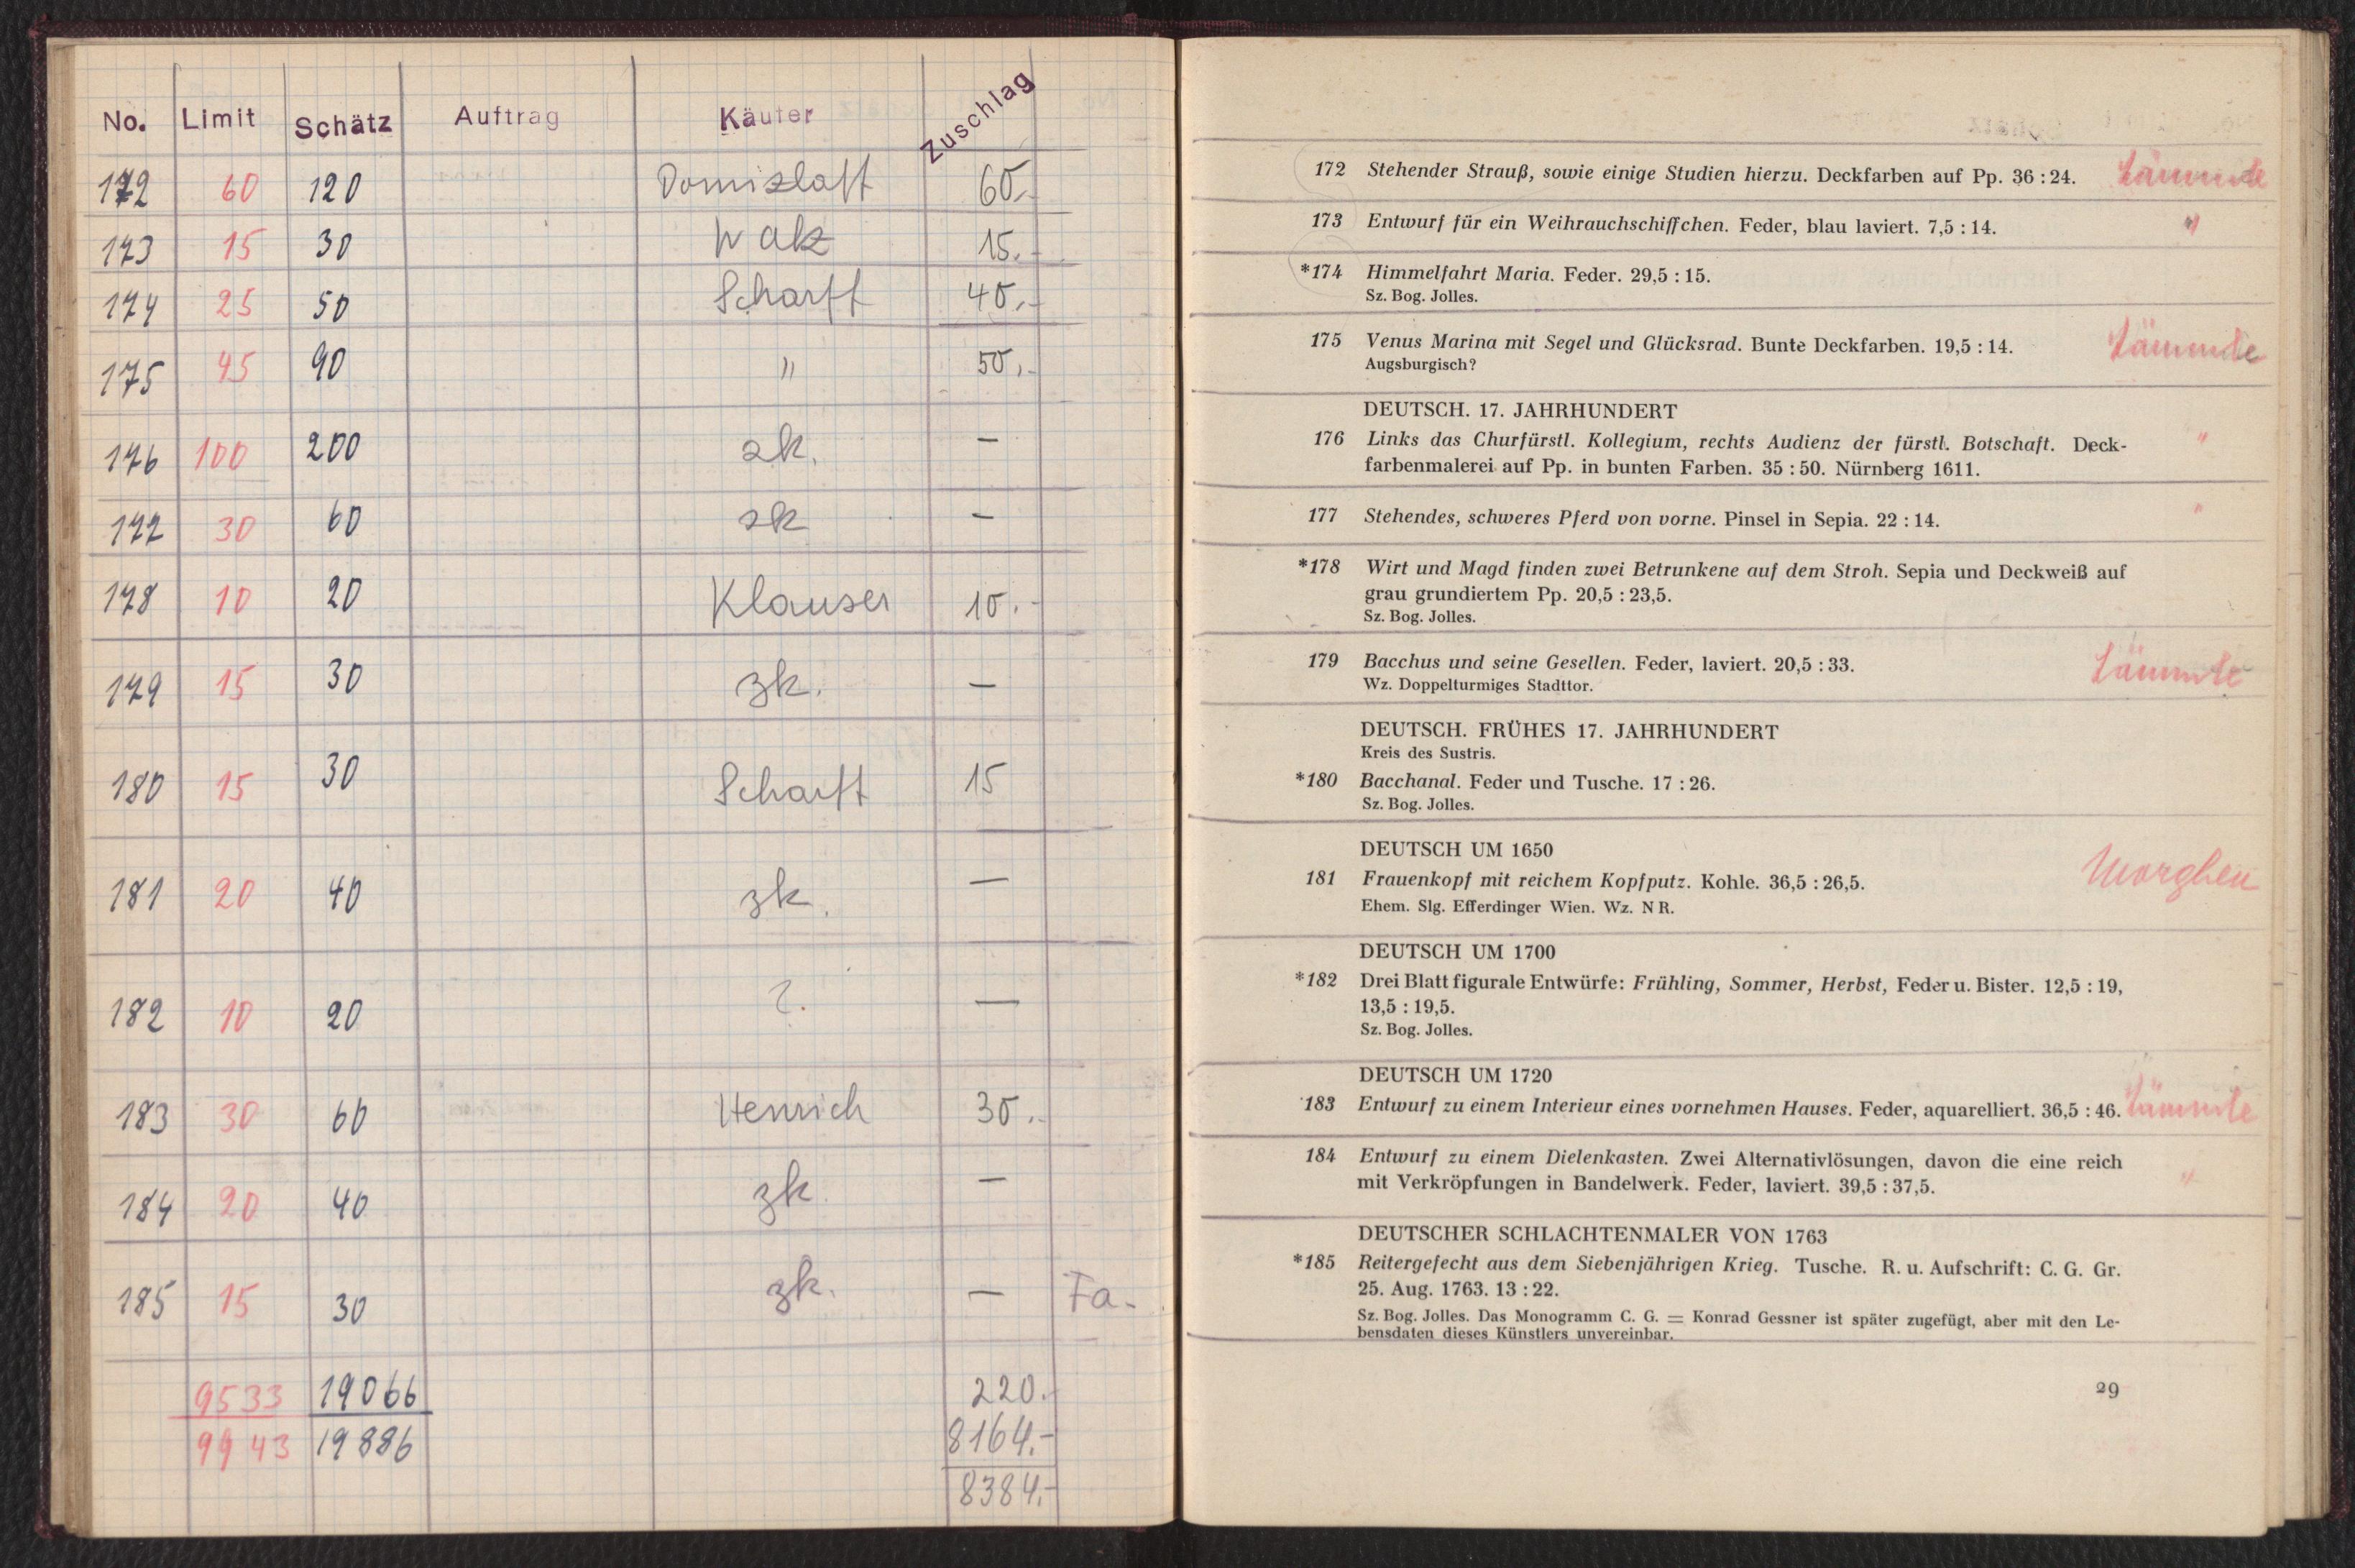 No. Limit Schätz Auftrag Käufer Zuschlag
172 60 120 Domizlaff 60.-
173 15 30 Walz 15.-
174 25 50 Scharff 40.-
175 45 90 " 50.-
176 100 200 zk. —
177 30 60 zk —
178 10 20 Klauser 10.-
179 15 30 zk. —
180 15 30 Scharff 15
181 20 40 zk. —
182 10 20 ?. —
183 30 60 Henrich 30.-
184 20 40 zk. —
185 15 30 zk. — Fa.
9533 19066 220.-
9943 19886 8164.-
8384.-
172 Stehender Strauß, sowie einige Studien hierzu. Deckfarben auf Pp. 36 : 24.
173 Entwurf für ein Weihrauchschiffchen. Feder, blau laviert. 7,5 : 14. "
*174 Himmelfahrt Maria. Feder. 29,5 : 15.
Sz. Bog. Jolles.
175 Venus Marina mit Segel und Glücksrad. Bunte Deckfarben. 19,5 : 14.
Augsburgisch?
DEUTSCH. 17. JAHRHUNDERT
176 Links das Churfürstl. Kollegium, rechts Audienz der fürstl. Botschaft. Deck- "
farbenmalerei auf Pp. in bunten Farben. 35 : 50. Nürnberg 1611.
177 Stehendes, schweres Pferd von vorne. Pinsel in Sepia. 22 : 14. "
*178 Wirt und Magd finden zwei Betrunkene auf dem Stroh. Sepia und Deckweiß auf
grau grundiertem Pp. 20,5 : 23,5.
Sz. Bog. Jolles.
179 Bacchus und seine Gesellen. Feder, laviert. 20,5 : 33.
Wz. Doppelturmiges Stadttor.
DEUTSCH. FRÜHES 17. JAHRHUNDERT
Kreis des Sustris.
*180 Bacchanal. Feder und Tusche. 17 : 26.
Sz. Bog. Jolles.
DEUTSCH UM 1650
181 Frauenkopf mit reichem Kopfputz. Kohle. 36,5 : 26,5. Morghen
Ehem. Slg. Efferdinger Wien. Wz. N R.
DEUTSCH UM 1700
*182 Drei Blatt figurale Entwürfe: Frühling, Sommer, Herbst, Feder u. Bister. 12,5 : 19,
13,5 : 19,5.
Sz. Bog. Jolles.
DEUTSCH UM 1720
183 Entwurf zu einem Interieur eines vornehmen Hauses. Feder, aquarelliert. 36,5 : 46.
184 Entwurf zu einem Dielenkasten. Zwei Alternativlösungen, davon die eine reich "
mit Verkröpfungen in Bandelwerk. Feder, laviert. 39,5 : 37,5.
DEUTSCHER SCHLACHTENMALER VON 1763
*185 Reitergefecht aus dem Siebenjährigen Krieg. Tusche. R. u. Aufschrift: C. G. Gr.
25. Aug. 1763. 13 : 22.
Sz. Bog. Jolles. Das Monogramm C. G. = Konrad Gessner ist später zugefügt, aber mit den Le-
bensdaten dieses Künstlers unvereinbar.
29